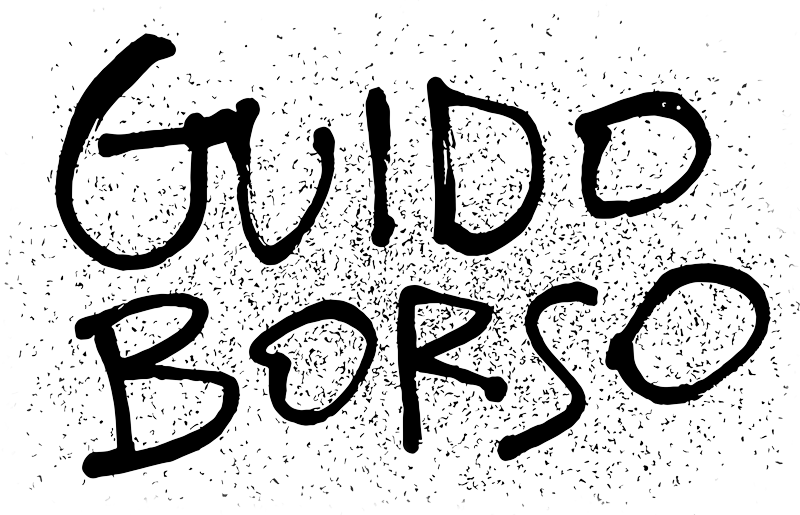 GUIDO
BORSO